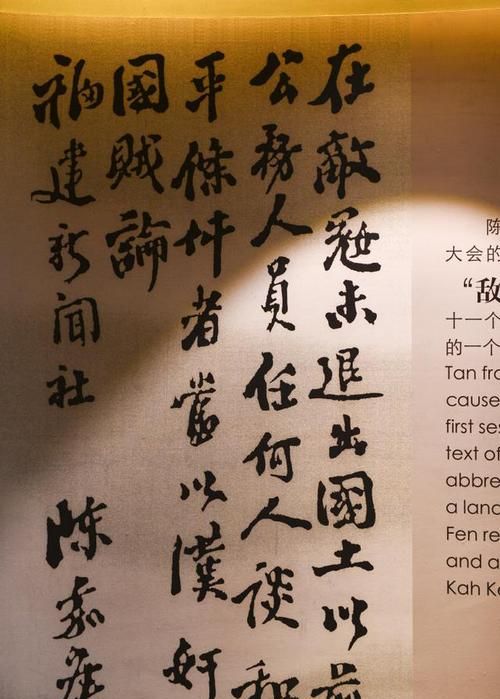 在敵寇未退出國土以前
公務人員任何人談和
平條件者當以漢奸
國賊論
福建新聞社 陈嘉庚
陈
大会的
“敌
十一个
的一个
Tan fro
cause
first ses
text of
abbre
a lan
Fen re
and a
Kah Ke